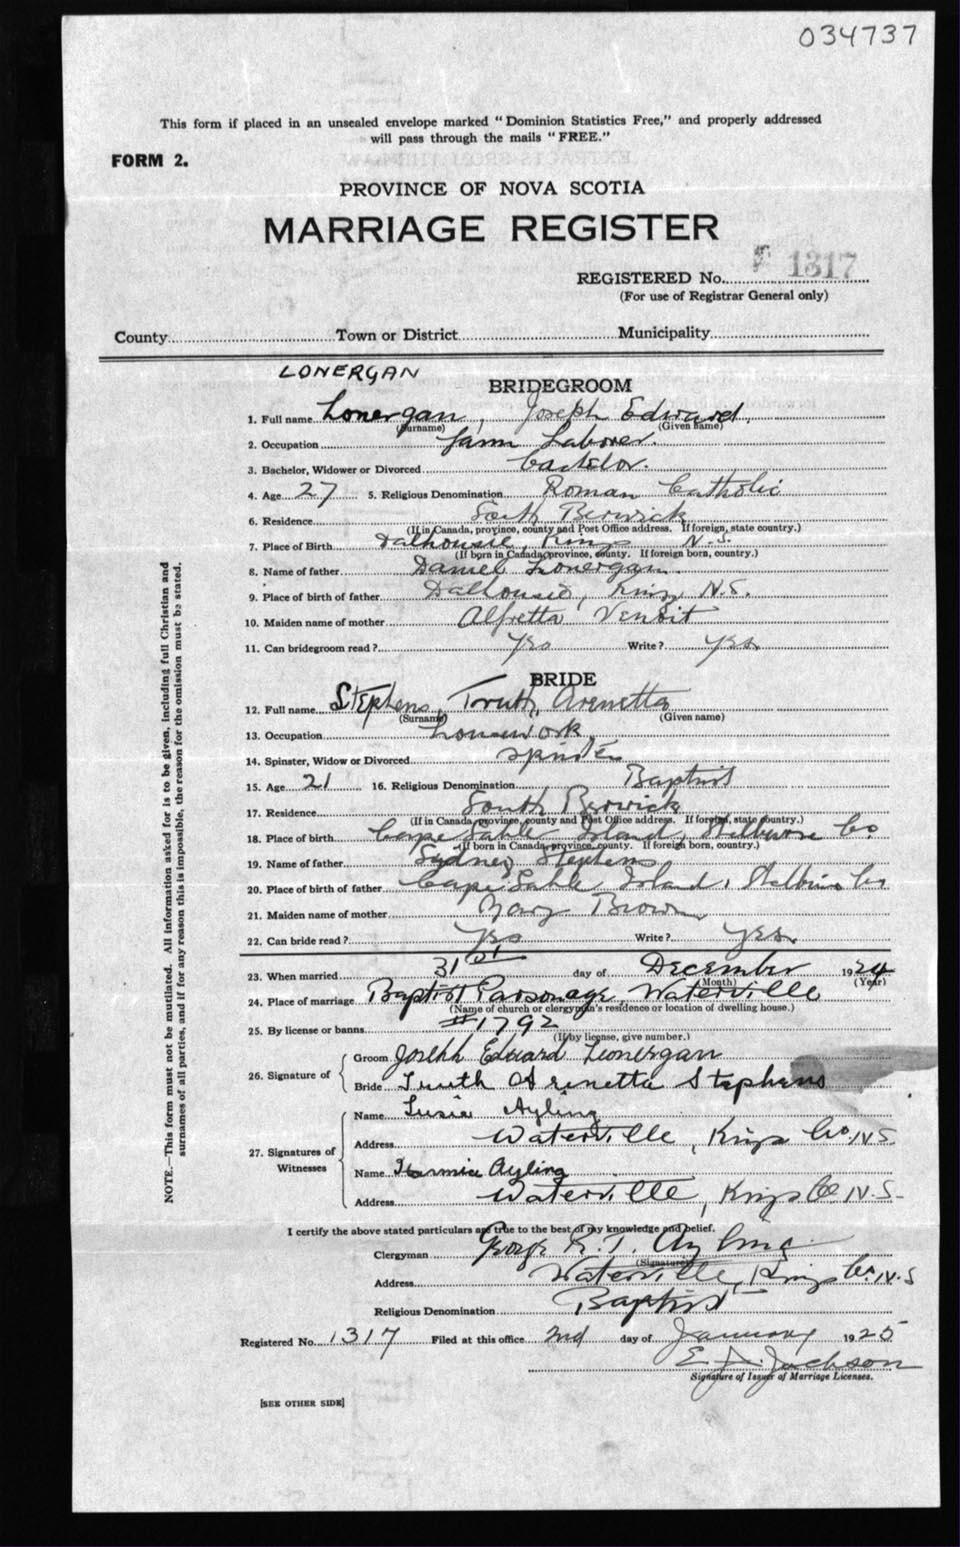 034737
This form if placed in an unsealed envelope marked "Dominion Statistics Free," and properly addressed
will pass through the mails "FREE."
FORM 2.
PROVINCE OF NOVA SCOTIA
MARRIAGE REGISTER
REGISTERED No. 1317
(For use of Registrar General only)
County Town or District Municipality
LONERGAN
BRIDEGROOM
1. Full name Lonergan, Joseph Edward
(Surname) (Given name)
2. Occupation farm Laborer.
3. Bachelor, Widower or Divorced Bachelor.
4. Age 27 5. Religious Denomination Roman Catholic
6. Residence South Berwick
(If in Canada, province, county and Post Office address. If foreign, state country.)
7. Place of Birth Dalhousie, Kings N.S.
(If born in Canada, province, county. If foreign born, country.)
8. Name of father Daniel Lonergan
9. Place of birth of father Dalhousie, Kings N.S.
10. Maiden name of mother Alfretta Venoit
11. Can bridegroom read? Yes Write? yes
BRIDE
12. Full name Stephens, Truth Arenetta
(Surname) (Given name)
13. Occupation housework
14. Spinster, Widow or Divorced spinster
15. Age 21 16. Religious Denomination Baptist
17. Residence South Berwick
(If in Canada, province, county and Post Office address. If foreign, state country.)
18. Place of birth Cape Sable Island, Shelburne Co
(If born in Canada, province, county. If foreign born, country.)
19. Name of father Sydney Stephens
20. Place of birth of father Cape Sable Island, Shelburne Co
21. Maiden name of mother Mary Brown
22. Can bride read? Yes Write? Yes.
23. When married 31st day of December 1924
(Month) (Year)
24. Place of marriage Baptist Parsonage, Waterville
(Name of church or clergyman's residence or location of dwelling house.)
25. By license or banns #1792
(If by license, give number.)
26. Signature of
Groom Joseph Edward Lonergan
Bride Truth Arenetta Stephens
27. Signatures of Witnesses
Name Susie Ayling
Address Waterville, Kings Co. N.S.
Name Ayling
Address Waterville, Kings Co N.S.
I certify the above stated particulars are true to the best of my knowledge and belief.
Clergyman George R. T. Ayling
(Signature)
Address Waterville, Kings Co. N.S
Religious Denomination Baptist
Registered No. 1317 Filed at this office 2nd day of January 1925
E Jackson
Signature of Issuer of Marriage Licenses.
[SEE OTHER SIDE]
NOTE.—This form must not be mutilated. All information asked for is to be given, including full Christian and
surnames of all parties, and if for any reason this is impossible, the reason for the omission must be stated.